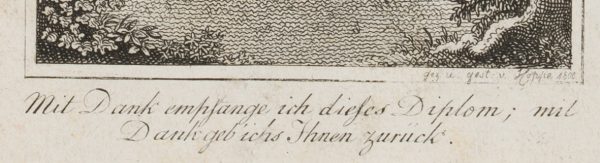 gez. u. gest. v. Hoppe 1800.
Mit Dank empfange ich dieſes Diplom; mit
Dank geb ichs Ihnen zurück.